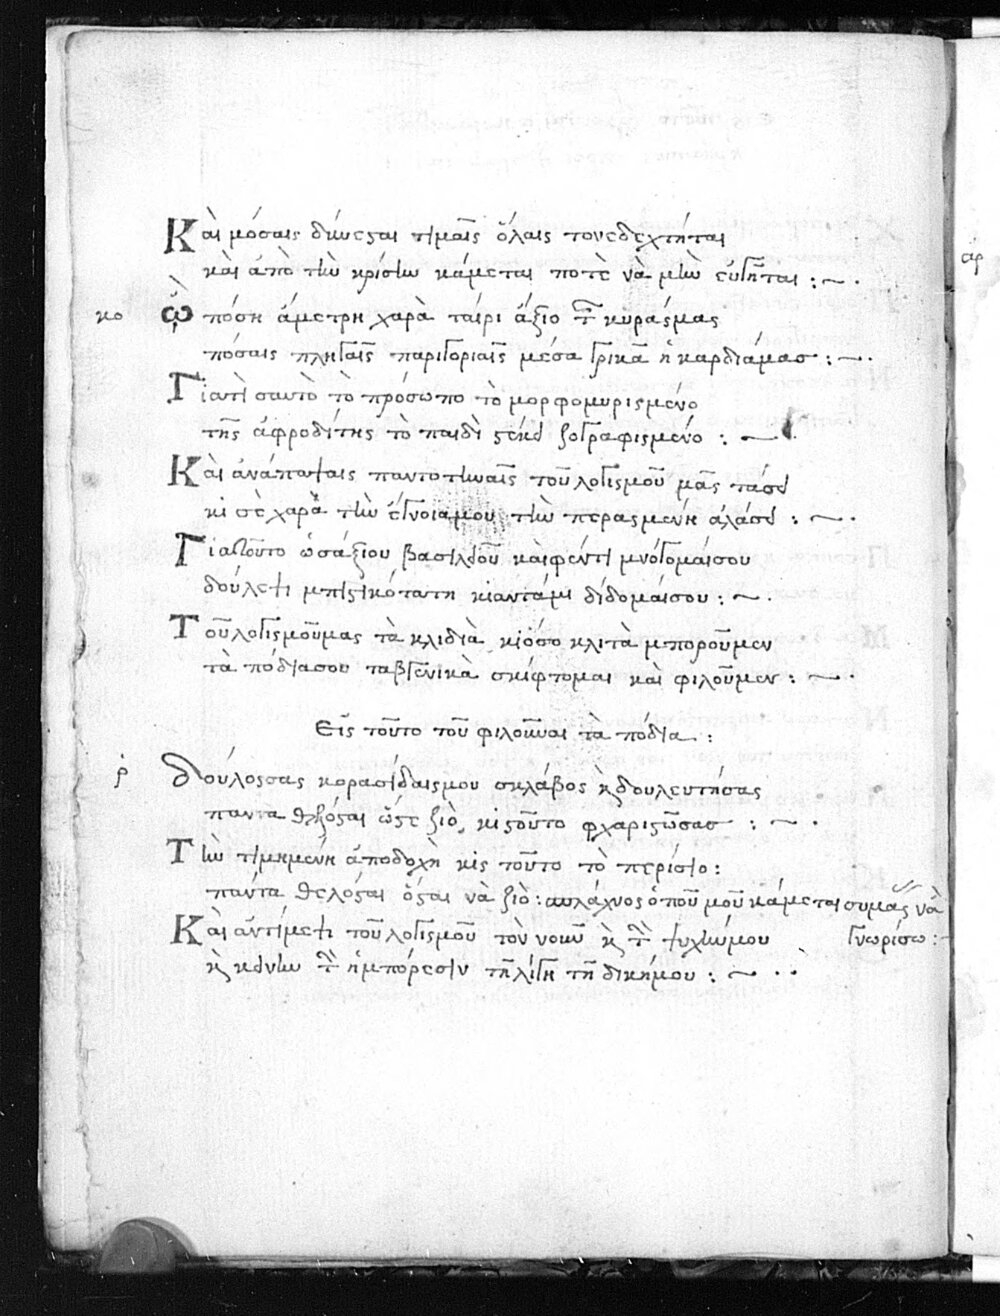 Καὶ μόσαις δκύεσται τιμαῖς ὅλαις τονεδεχτῆται
καὶ ἀπὸ τὴν κρίσιν κάμεται ποτὲ νὰ μὴν εὐγῆται : ~ ·
κο Ὦ πόση ἄμετρη χαρὰ ταίρι ἄξιο τῆ κυράσμας
πόσαις πληγαῖς παριγοριαῖς μέσα γρικᾶ ἡ καρδιάμασ : ~ ·
Γιατὶ σαυτὸ τὸ πρόσωπο τὸ μορφομυρισμένο
τῆς ἀφροδίτης τὸ παιδὶ στέκει ζογραφισμένο : ~ ·
Καὶ ἀνάπαψαις παντοτιναῖς τοῦ λογισμοῦ μᾶς τάσει
κι σὲ χαρὰ τὴν ἔγνοιαμου τὴν περασμένη ἀλάσει : ~ ·
Γιαυτοῦτο ὡσάξιου βασιλειοῦ καὶ φέντι μνόγομαίσου
δούλεψι μπιστικότατη κιαντάμι δίδομαίσου : ~ ·
Τοῦ λογισμοῦμας τὰ κλιδιὰ κιόσο κλιτὰ μποροῦμεν
τὰ πόδιασου ταβγενικὰ σκίφτομαι καὶ φιλοῦμεν : ~ ·
Εἰς τοῦτο τοῦ φιλοῦναι τὰ πόδια :
ρ Δούλοςσας κορασίδαισμου σκλάβος κ δουλευτήσας
πάντα θελόσται ὥστε ζιὸ, κιστοῦτο φχαριστῶσασ : ~ ·
Τὴν τιμημένη ἀποδοχὴ κις τοῦτο τὸ περίσιο :
πάντα θελόσται ὅσται νὰ ζιὸ : ὁποῦ μοῦ κάμεται συμας νὰ
γνωρίσω :
Καὶ ἀντίμεψι τοῦ λογισμοῦ τὸν νοῦν κ τὴ ψυχήμου
κ κείνην τὴ ἡμπόρεσιν τῆ λίγη τῆ δικήμου : ~ · ·